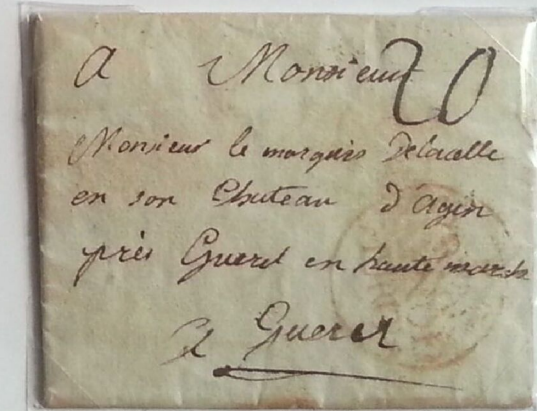 A Monsieur 20
Monsieur le marquis Delacelle
en son Chateau d'agin
près Gueret en haute march
A Gueret